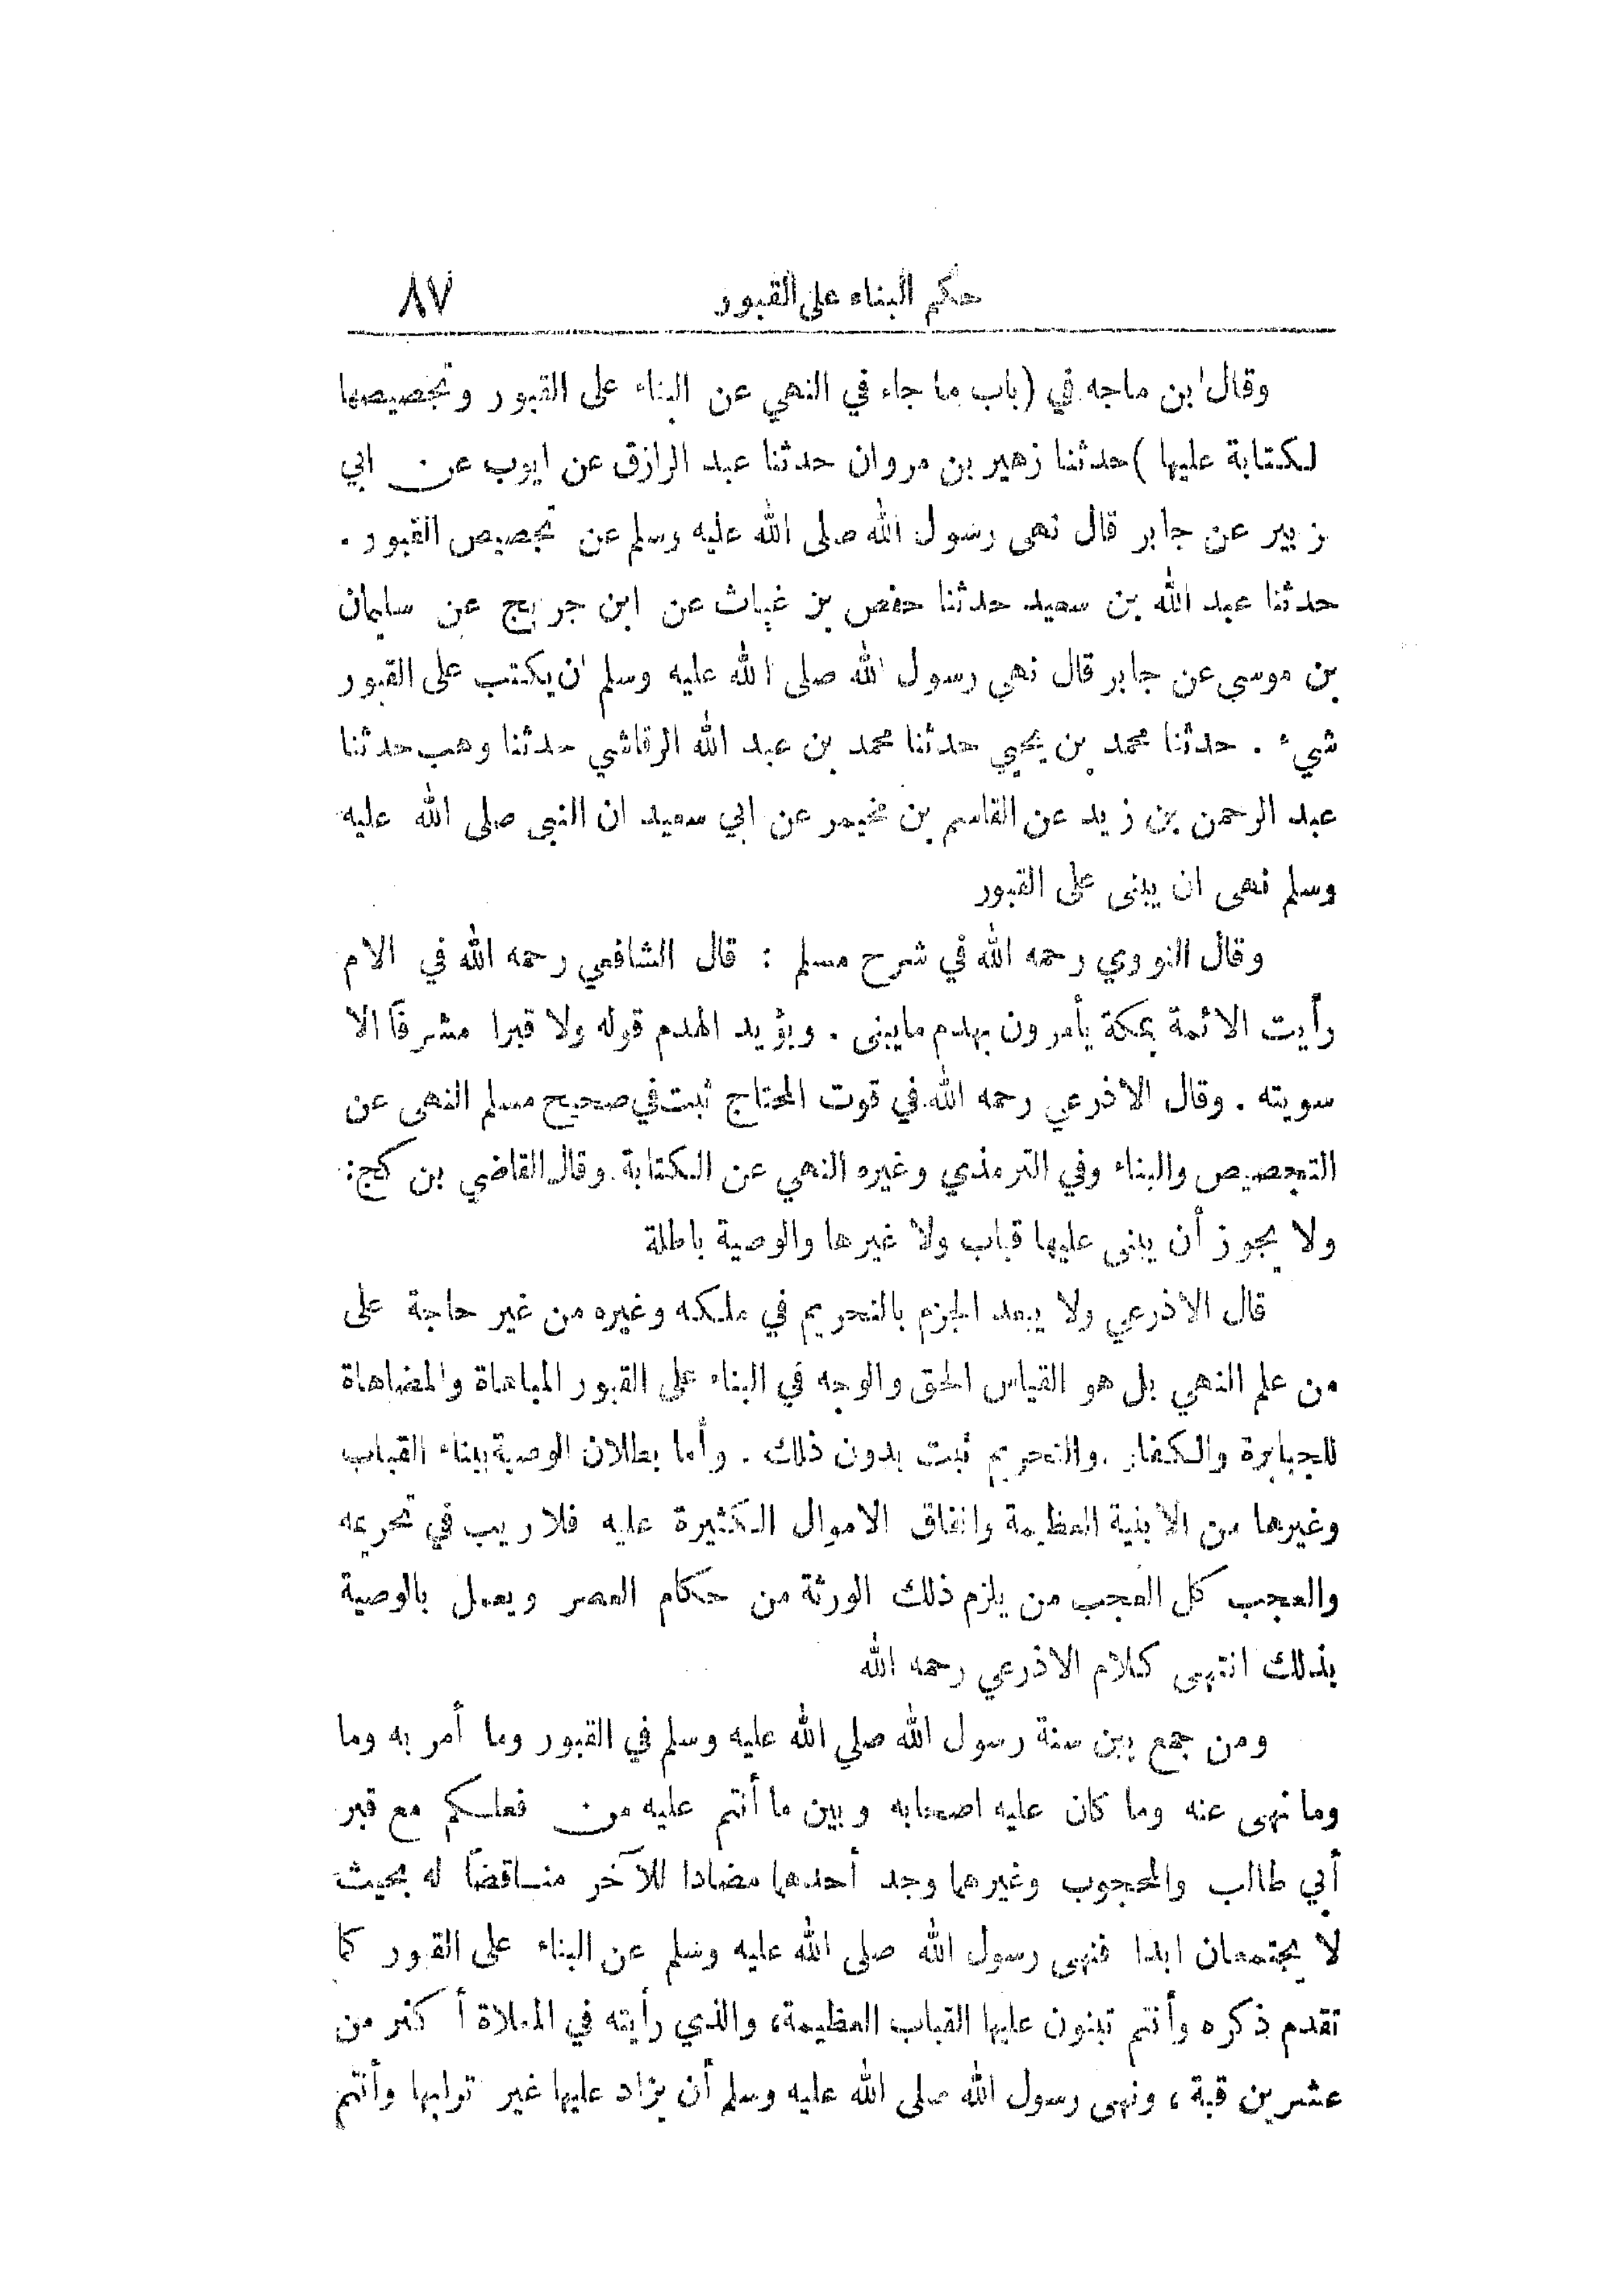 حكم البناء على القبور ٨٧
وقال ابن ماجه في (باب ما جاء في النهي عن البناء على القبور وتجصيصها
لكتابة عليها) حدثنا زهير بن مروان حدثنا عبد الرازق عن ايوب عن ابي
زبير عن جابر قال نهى رسول الله صلى الله عليه وسلم عن تجصيص القبور.
حدثنا عبد الله بن سعيد حدثنا حفص بن غياث عن ابن جريج عن سليمان
بن موسى عن جابر قال نهى رسول الله صلى الله عليه وسلم ان يكتب على القبور
شيء . حدثنا محمد بن يحيي حدثنا محمد بن عبد الله الرقاشي حدثنا وهب حدثنا
عبد الرحمن بن زيد عن القاسم بن مخيمر عن ابي سعيد ان النبي صلى الله عليه
وسلم نهى ان يبنى على القبور
وقال النووي رحمه الله في شرح مسلم : قال الشافعي رحمه الله في الام
رأيت الائمة بمكة يأمرون بهدم مايبنى . ويؤيد الهدم قوله ولا قبرا مشرفاً الا
سويته . وقال الاذرعي رحمه الله في قوت المحتاج ثبت في صحيح مسلم النهى عن
التجصيص والبناء وفي الترمذي وغيره النهي عن الكتابة. وقال القاضي بن كج:
ولا يجوز أن يبنى عليها قباب ولا غيرها والوصية باطلة
قال الاذرعي ولا يبعد الجزم بالتحريم في ملكه وغيره من غير حاجة على
من علم النهي بل هو القياس الحق والوجه في البناء على القبور المباهاة والمضاهاة
للجبابرة والكفار. والتحريم ثبت بدون ذلك . وأما بطلان الوصية ببناء القباب
وغيرها من الابنية العظيمة وانفاق الاموال الكثيرة عليه فلا ريب في تحريمه
والعجب كل العجب من يلزم ذلك الورثة من حكام العصر ويعمل بالوصية
بذلك انتهى كلام الاذرعي رحمه الله
ومن جمع بين سنة رسول الله صلي الله عليه وسلم في القبور وما أمر به وما
وما نهى عنه وما كان عليه اصحابه وبين ما أنتم عليه من فعلكم مع قبر
أبي طالب والمحجوب وغيرهما وجد أحدهما مضادا للآخر مناقضاً له بحيث
لا يجتمعان ابدا فنهى رسول الله صلى الله عليه وسلم عن البناء على القبور كما
تقدم ذكره وأنتم تبنون عليها القباب العظيمة، والذي رأيته في المعلاة أكثر من
عشرين قبة ، ونهى رسول الله صلى الله عليه وسلم أن يزاد عليها غير ترابها وأنتم